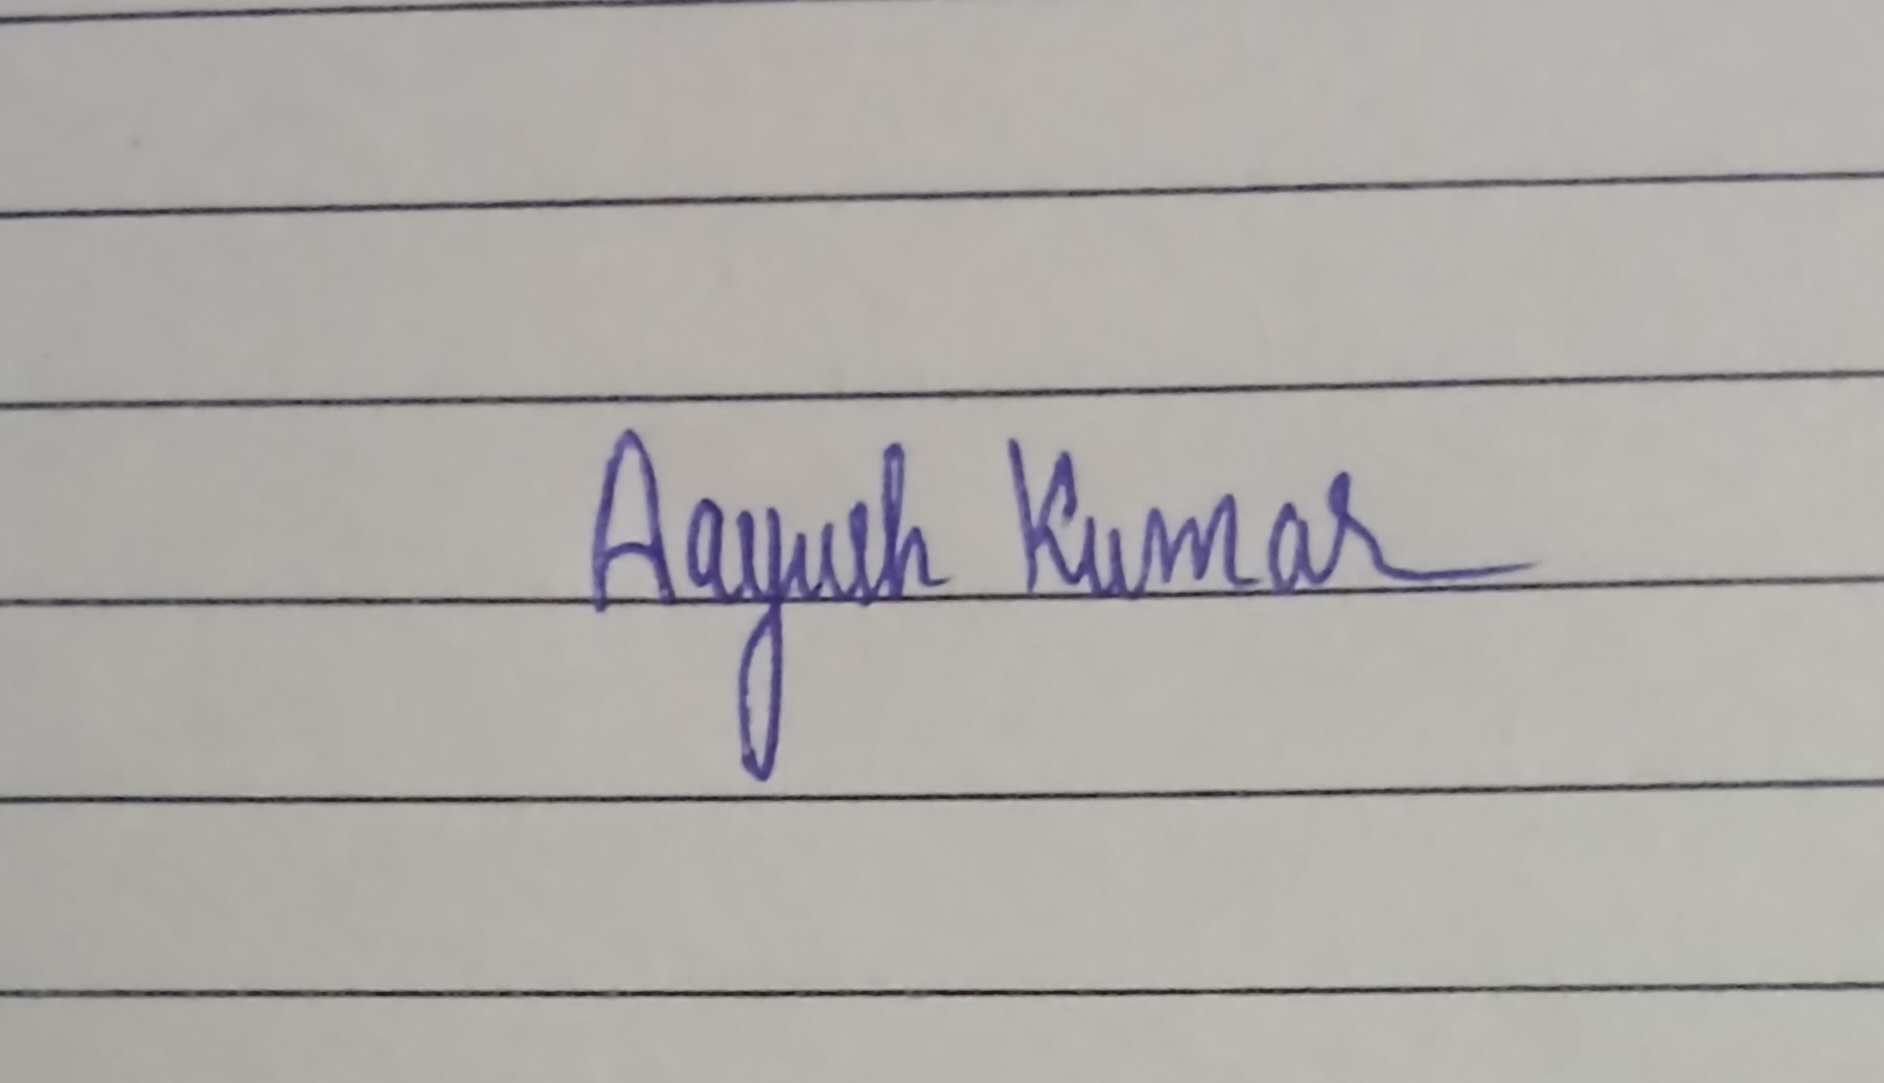 Aayush Kumar